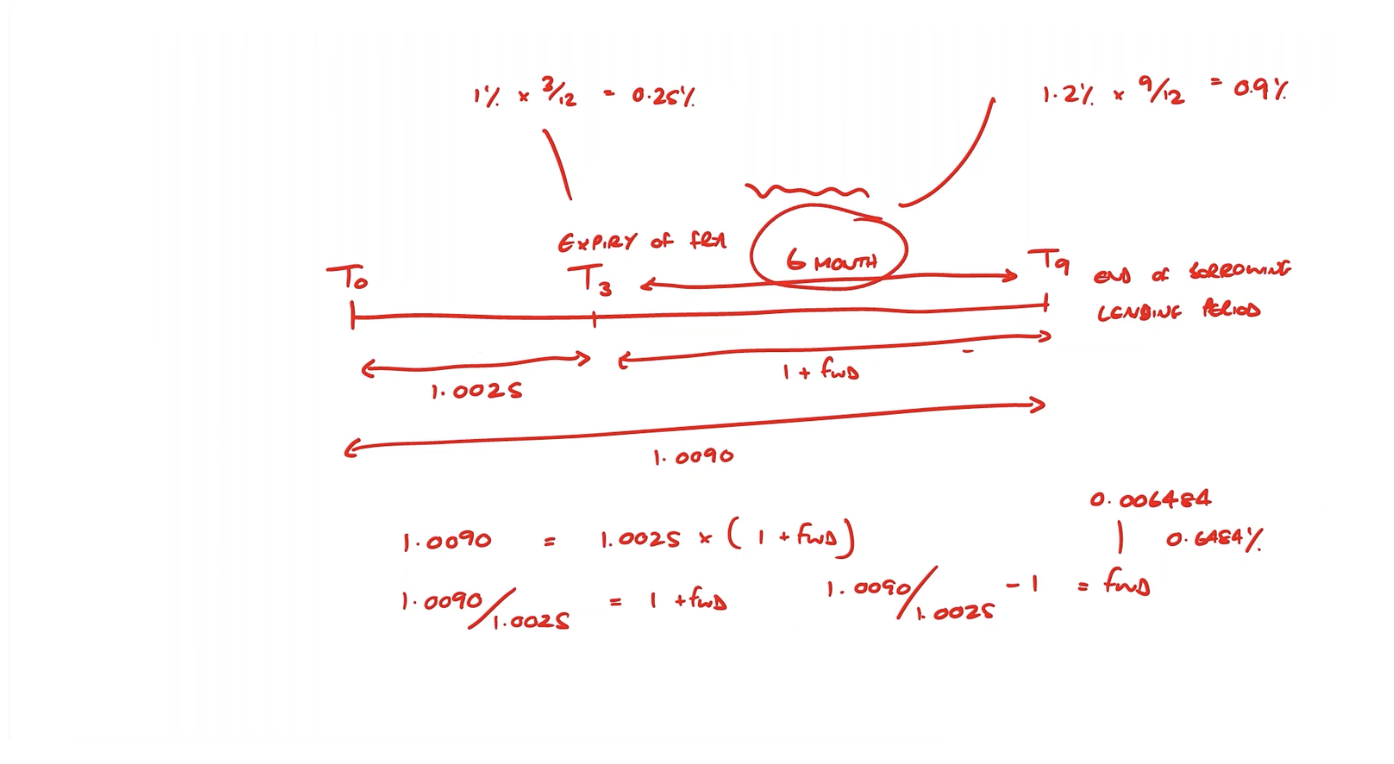 1% × 3/12 = 0.25%
1.2% × 9/12 = 0.9%
EXPIRY OF FRA
6 MONTH
T0
T3
T9
END OF BORROWING
LENDING PERIOD
1.0025
1 + FWD
1.0090
0.006484
0.6484%
1.0090 = 1.0025 × ( 1 + FWD)
1.0090/1.0025 = 1 + FWD
1.0090/1.0025 - 1 = FWD